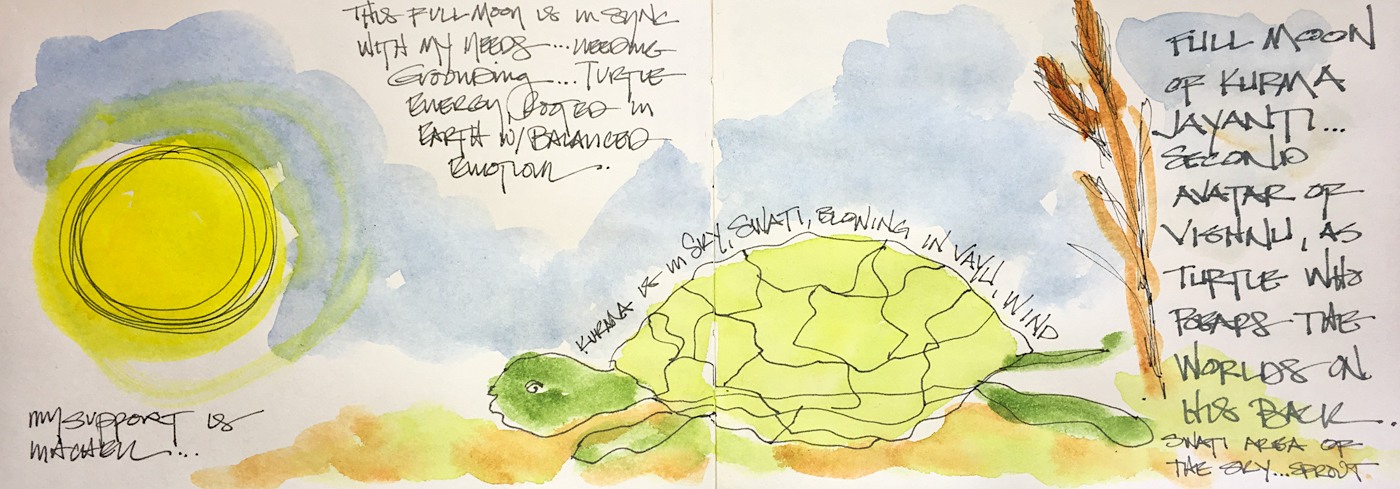 THIS FULL MOON IS IN SYNC
WITH MY NEEDS...NEEDING
GROUNDING...TURTLE
ENERGY ROOTED IN
EARTH W/BALANCED
EMOTION...
KURMA IS IN SKY, SWATI, BLOWING IN VAYU, WIND
MY SUPPORT IS
FULL MOON
OF KURMA
JAYANTI...
SECOND
AVATAR OF
VISHNU, AS
TURTLE WHO
BEARS THE
WORLDS ON
HIS BACK...
SWATI AREA OF
THE SKY...SPROUT